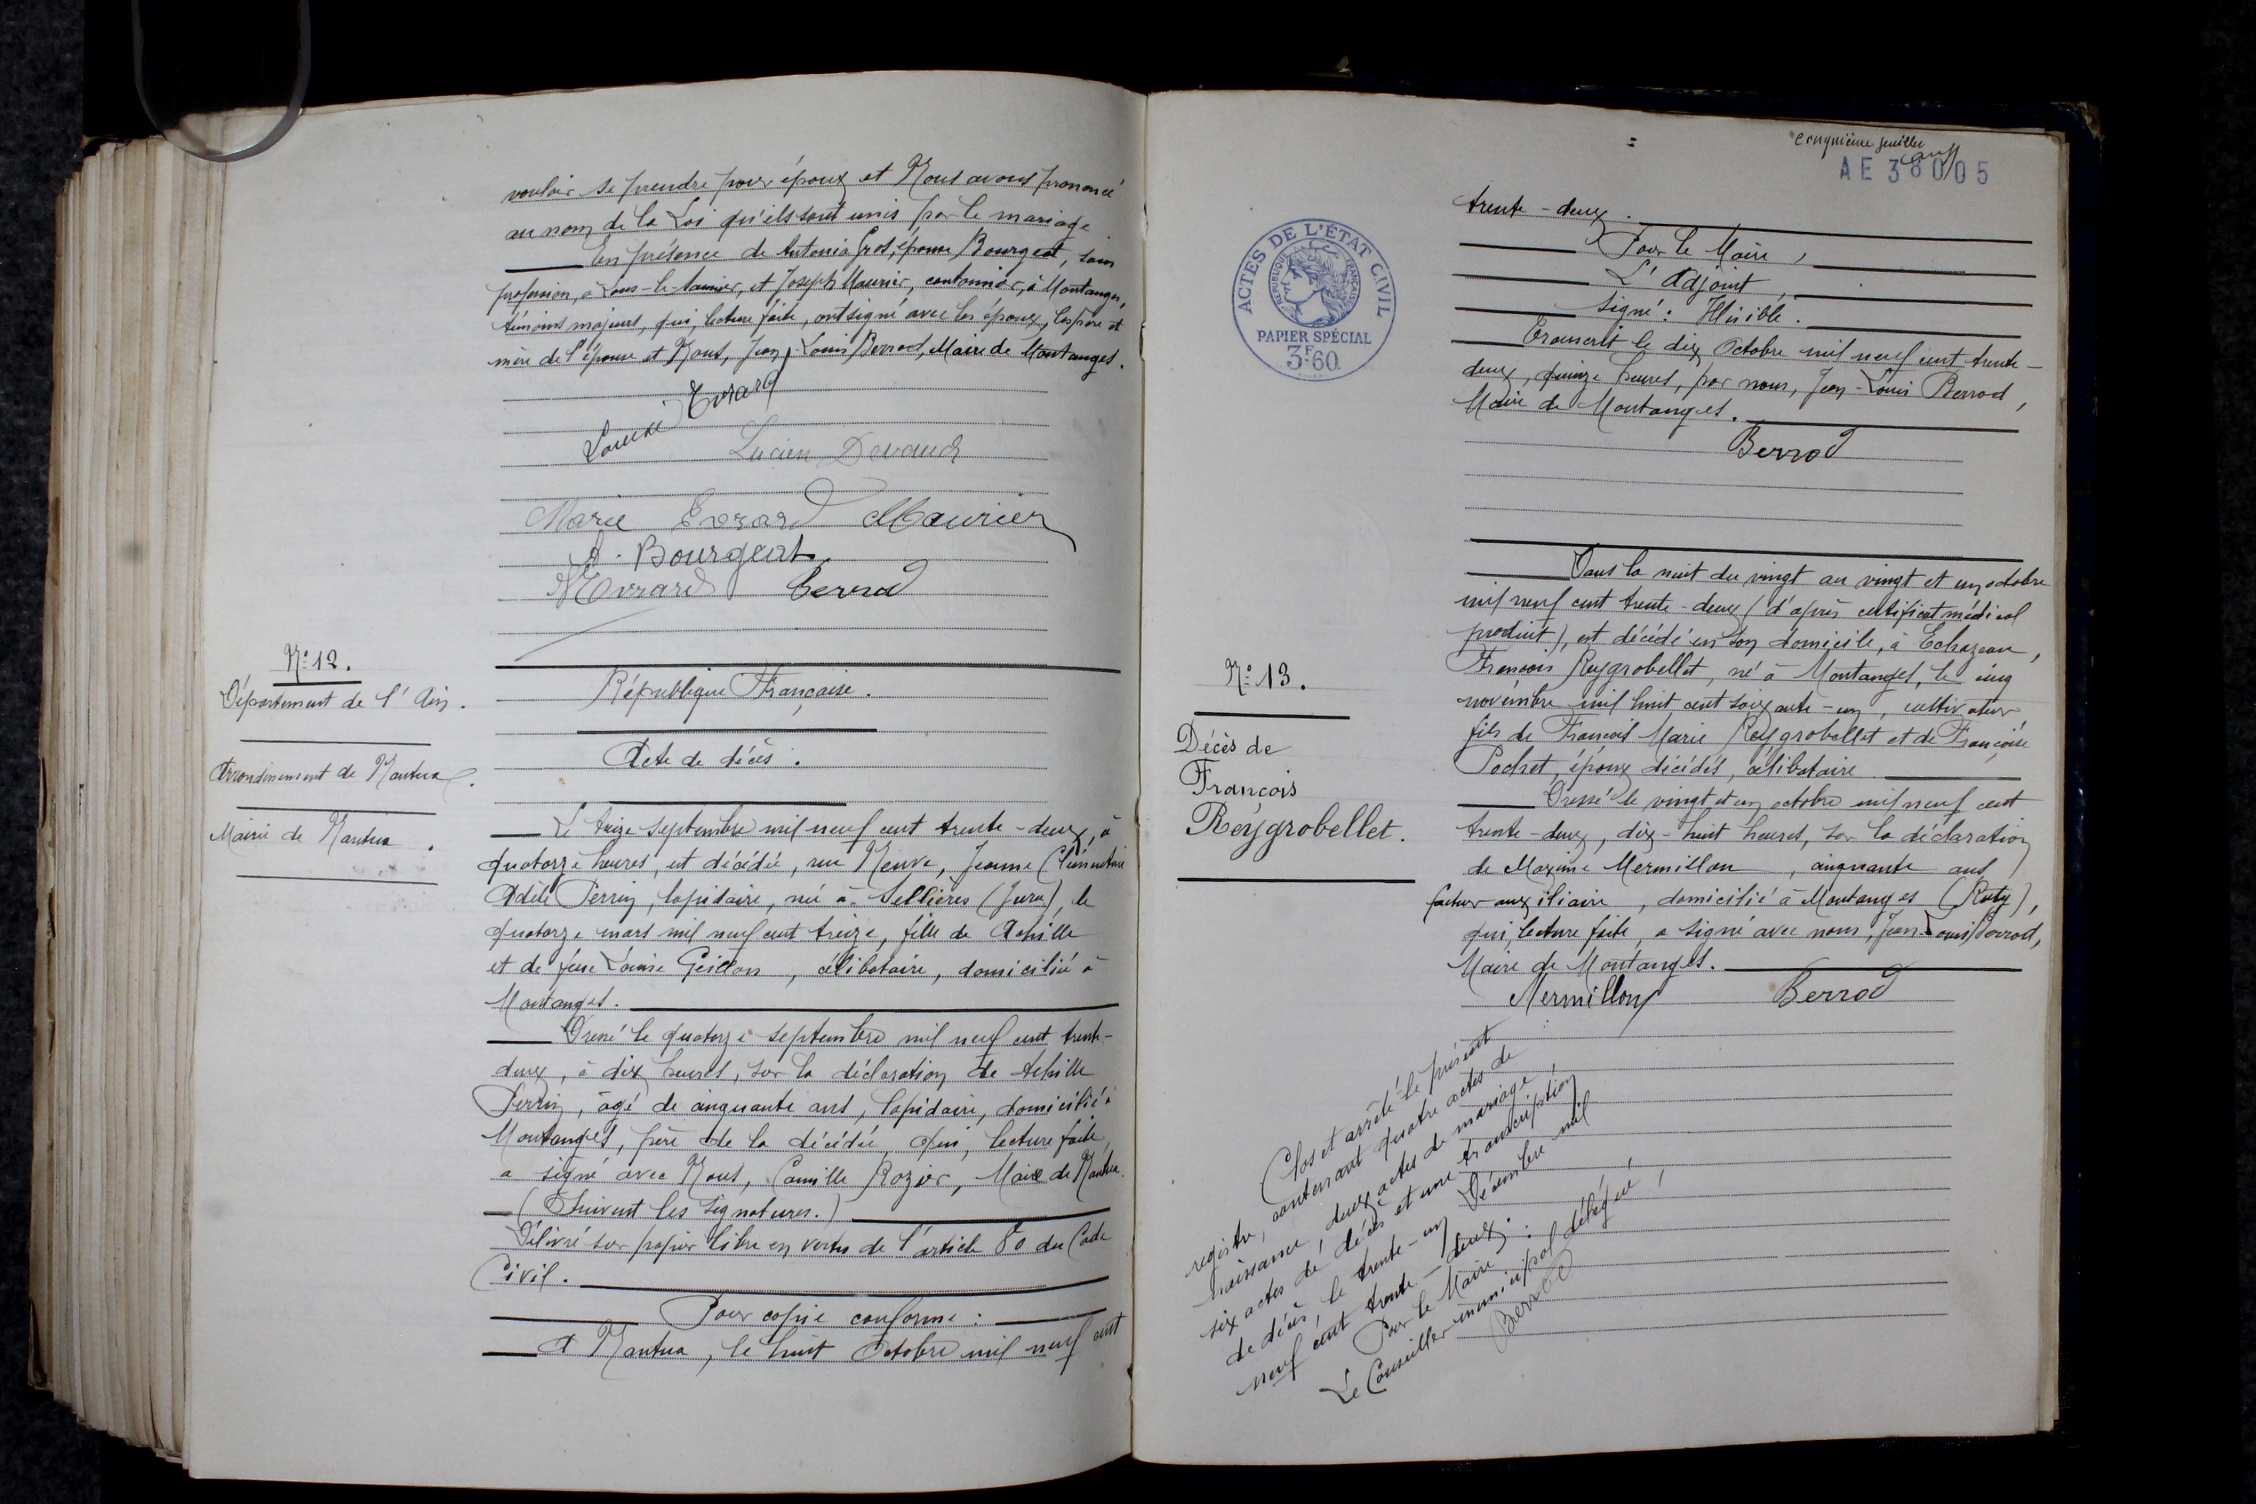 vouloir se prendre pour époux et Nous avons prononcé
au nom de la Loi qu'ils sont unis par le mariage
En présence de Antonia Gros, épouse Bourgeat, sans
profession, à Lons-le-Saunier, et Joseph Maurier, cantonnier, à Montanges,
témoins majeurs, qui, lecture faite, ont signé avec les époux, les père et
mère de l'épouse et Nous, Jean-Louis Berrod, Maire de Montanges.
Louise Evrard
Lucien Devaud
Marie Evrard Maurier
A. Bourgeat
Evrard Berrod
N° 12.
Département de l'Ain.
Arrondissement de Nantua.
Mairie de Nantua.
République Française.
Acte de décès.
Le treize septembre mil neuf cent trente-deux, à
quatorze heures, est décédée, rue Neuve, Jeanne Clémentine
Adèle Perrin, lapidaire, née à Sellières (Jura), le
quatorze mars mil neuf cent treize, fille de Achille
et de feue Louise, célibataire, domiciliée à
Montanges.
Dressé le quatorze septembre mil neuf cent trente-
deux, à dix heures, sur la déclaration de Achille
Perrin, âgé de cinquante ans, lapidaire, domicilié à
Montanges, père de la décédée, qui, lecture faite,
a signé avec Nous, Camille Rozier, Maire de Nantua.
(Suivent les signatures.)
Délivré sur papier libre en vertu de l'article 80 du Code
Civil.
Pour copie conforme :
A Nantua, le huit Octobre mil neuf cent
cinquième feuillet
AE 38005
ACTES DE L'ÉTAT CIVIL
RÉPUBLIQUE FRANÇAISE
PAPIER SPÉCIAL
3F.60
trente-deux.
Pour le Maire,
L'Adjoint,
signé : Illisible.
Transcrit le dix Octobre mil neuf cent trente-
deux, quinze heures, par nous, Jean-Louis Berrod,
Maire de Montanges.
Berrod
N° 13.
Décès de
François
Reygrobellet.
Dans la nuit du vingt au vingt et un octobre
mil neuf cent trente-deux (d'après certificat médical
produit), est décédé en son domicile, à Echazeau,
François Reygrobellet, né à Montanges, le cinq
novembre mil huit cent soixante-un, cultivateur
fils de François Marie Reygrobellet et de Françoise
Pochet, époux décédés, célibataire
Dressé le vingt et un octobre mil neuf cent
trente-deux, dix-huit heures, sur la déclaration
de Maxime Mermillon, cinquante ans
facteur auxiliaire, domicilié à Montanges (Ruty),
qui, lecture faite, a signé avec nous, Jean-Louis Berrod,
Maire de Montanges.
Mermillon Berrod
Clos et arrêté le présent
registre, contenant quatre actes de
naissance, deux actes de mariage,
six actes de décès et une transcription
de décès, le trente-un Décembre mil
neuf cent trente-deux.
Pour le Maire :
Le Conseiller municipal délégué,
Berrod